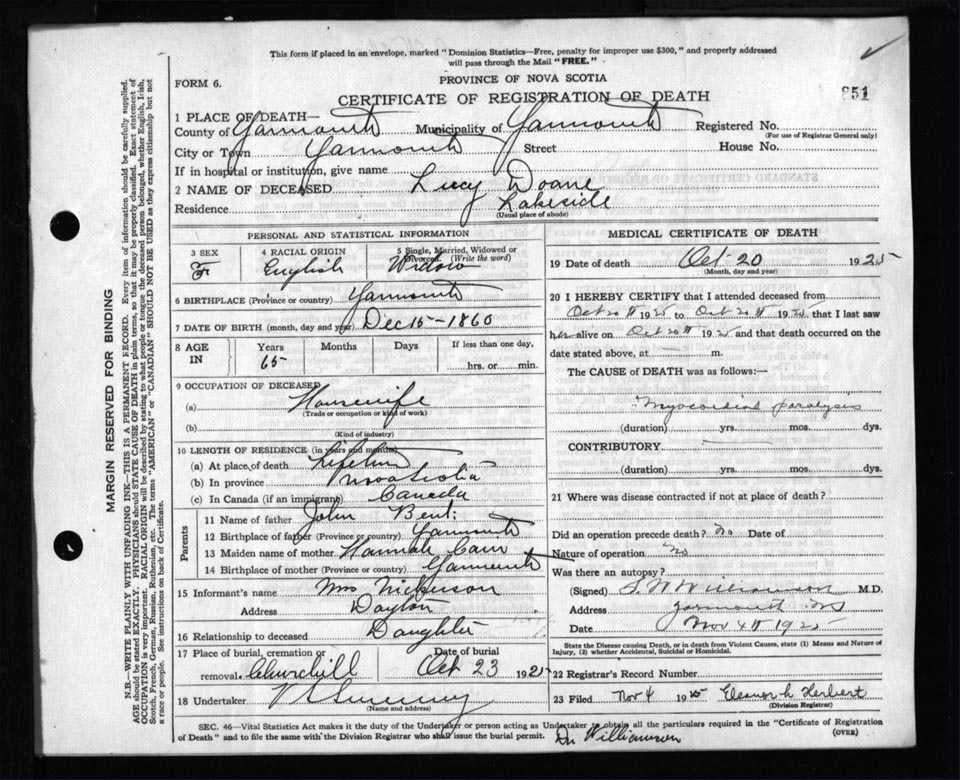 This form if placed in an envelope, marked "Dominion Statistics—Free, penalty for improper use $300," and properly addressed
will pass through the Mail "FREE."
PROVINCE OF NOVA SCOTIA
FORM 6.
CERTIFICATE OF REGISTRATION OF DEATH
851
1 PLACE OF DEATH—
County of Yarmouth Municipality of Yarmouth Registered No.
(For use of Registrar General only)
City or Town Yarmouth Street House No.
If in hospital or institution, give name
2 NAME OF DECEASED Lucy Doane
Residence Lakeside
(Usual place of abode)
PERSONAL AND STATISTICAL INFORMATION
3 SEX 4 RACIAL ORIGIN 5 Single, Married, Widowed or Divorced. (Write the word)
F English Widow
6 BIRTHPLACE (Province or country) Yarmouth
7 DATE OF BIRTH (month, day, and year) Dec 15-1860
8 AGE IN Years Months Days If less than one day,
65 hrs. or min.
9 OCCUPATION OF DECEASED
(a) Housewife
(Trade or occupation or kind of work)
(b)
(Kind of industry)
10 LENGTH OF RESIDENCE (in years and months)
(a) At place of death Lifetime
(b) In province Nova Scotia
(c) In Canada (if an immigrant) Canada
Parents
11 Name of father John Bent
12 Birthplace of father (Province or country) Yarmouth
13 Maiden name of mother Hannah Cain
14 Birthplace of mother (Province or country) Yarmouth
15 Informant's name Mrs Nickerson
Address Dayton
16 Relationship to deceased Daughter
17 Place of burial, cremation or removal Churchill Date of burial Oct 23 1925
18 Undertaker
(Name and address)
MEDICAL CERTIFICATE OF DEATH
19 Date of death Oct-20 1925
(Month, day and year)
20 I HEREBY CERTIFY that I attended deceased from
Oct 20th 1925 to Oct 20th 1925 that I last saw
her alive on Oct 20th 1925 and that death occurred on the
date stated above, at m.
The CAUSE of DEATH was as follows:—
Myocardial paralysis
(duration) yrs. mos. dys.
CONTRIBUTORY
(duration) yrs. mos. dys.
21 Where was disease contracted if not at place of death?
Did an operation precede death? no Date of
Nature of operation no
Was there an autopsy?
(Signed) Williamson M.D.
Address Yarmouth NS
Date Nov 4th 1925
State the Disease causing Death, or in death from Violent Causes, state (1) Means and Nature of
Injury, (2) whether Accidental, Suicidal or Homicidal.
22 Registrar's Record Number
23 Filed Nov 4 1925 Eleanor L Herbert
(Division Registrar)
SEC. 46—Vital Statistics Act makes it the duty of the Undertaker or person acting as Undertaker to obtain all the particulars required in the "Certificate of Registration
of Death" and to file the same with the Division Registrar who shall issue the burial permit. Dr Williamson
(OVER)
MARGIN RESERVED FOR BINDING
N.B.—WRITE PLAINLY WITH UNFADING INK—THIS IS A PERMANENT RECORD. Every item of information should be carefully supplied.
AGE should be stated EXACTLY. PHYSICIANS should STATE CAUSE OF DEATH in plain terms, so that it may be properly classified. Exact statement of
OCCUPATION is very important. RACIAL ORIGIN will be described by stating to what people or tongue the deceased person belonged, whether English, Irish,
Scotch, French, German, Russian, Ruthenian, etc. The terms "AMERICAN" or "CANADIAN" SHOULD NOT BE USED as they express citizenship but not
a race or people. See instructions on back of Certificate.